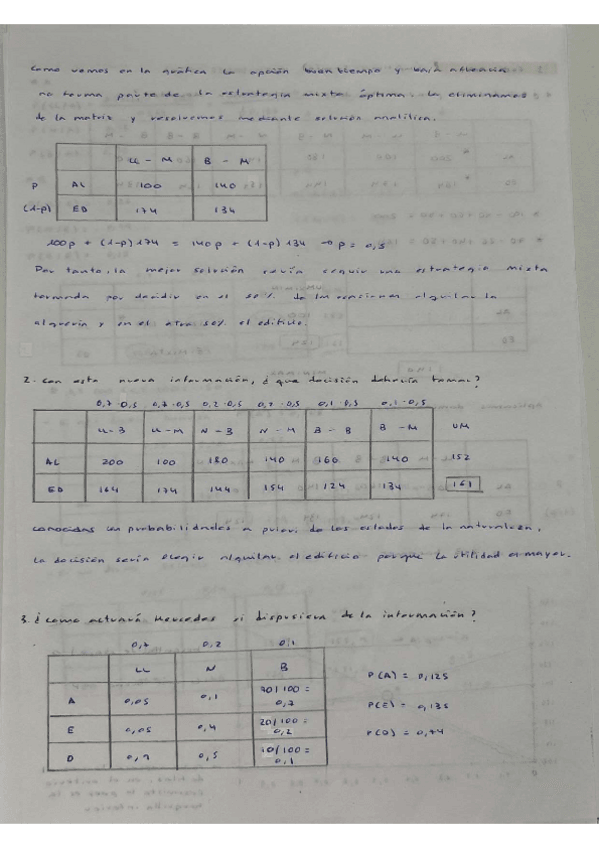 como vemos en la gráfica la opción buen tiempo y baja afluencia
no forma parte de la estrategia mixta óptima. La eliminamos
de la matriz y resolvemos mediante solución analítica.
LL - M B - M
P AL 100 140
(1-p) ED 174 134
100p + (1-p) 174 = 140p + (1-p) 134 → p = 0,5
Por tanto, la mejor solución sería seguir una estrategia mixta
formada por decidir en el 50% de las ocasiones alquilar la
alquería y en el otro 50% el edificio.
2. Con esta nueva información, ¿que decisión debería tomar?
0,7 · 0,5 0,7 · 0,5 0,2 · 0,5 0,2 · 0,5 0,1 · 0,5 0,1 · 0,5
LL - B LL - M N - B N - M B - B B - M UM
AL 200 100 180 140 160 140 152
ED 164 174 144 154 124 134 161
conocidas las probabilidades a priori de los estados de la naturaleza,
la decisión sería elegir alquilar el edificio porque la utilidad es mayor.
3. ¿Como actuará Mercedes si dispusiera de la información?
0,7 0,2 0,1
LL N B
A 0,05 0,1 70/100 = 0,7
E 0,05 0,4 20/100 = 0,2
D 0,9 0,5 10/100 = 0,1
P(A) = 0,125
P(E) = 0,135
P(D) = 0,74